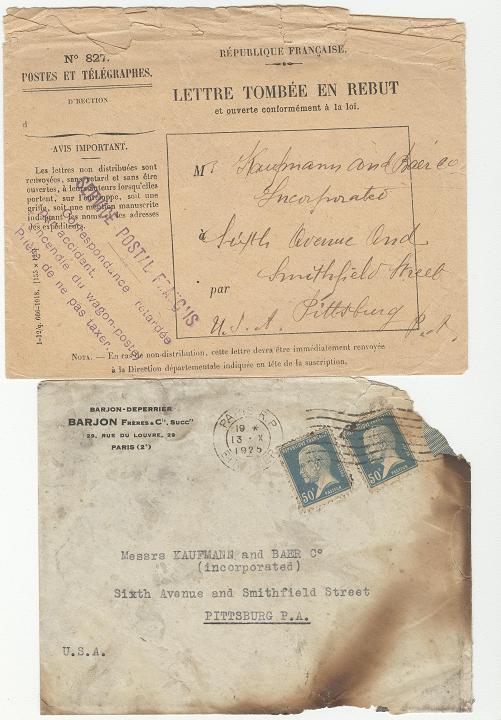 Nº 827.
POSTES ET TÉLÉGRAPHES.
DIRECTION
d
AVIS IMPORTANT.
Les lettres non distribuées sont
renvoyées, sans retard et sans être
ouvertes, à leurs auteurs lorsqu'elles
portent, sur l'enveloppe, soit une
griffe, soit une mention manuscrite
indiquant les noms et les adresses
des expéditeurs.
RÉPUBLIQUE FRANÇAISE.
LETTRE TOMBÉE EN REBUT
et ouverte conformément à la loi.
M
Kaufmann and Baer Co
Incorporated
à Sixth Avenue And
Smithfield Street
par Pittsburg
U.S.A. P.A.
SERVICE POSTAL FRANÇAIS
Correspondance retardée
accident
incendie du wagon-postal
Prière de ne pas taxer.
NOTA. — En cas de non-distribution, cette lettre devra être immédiatement renvoyée
à la Direction départementale indiquée en tête de la suscription.
BARJON-DEPERRIER
BARJON FRÈRES & Cie, SUCCrs
29, RUE DU LOUVRE, 29
PARIS (2e)
PARIS R.P.
19 *
13 - X
1925
RÉPUBLIQUE FRANÇAISE
50c
PASTEUR
RÉPUBLIQUE FRANÇAISE
50c
PASTEUR
Messrs KAUFMANN and BAER Co
(incorporated)
Sixth Avenue and Smithfield Street
PITTSBURG P.A.
U.S.A.